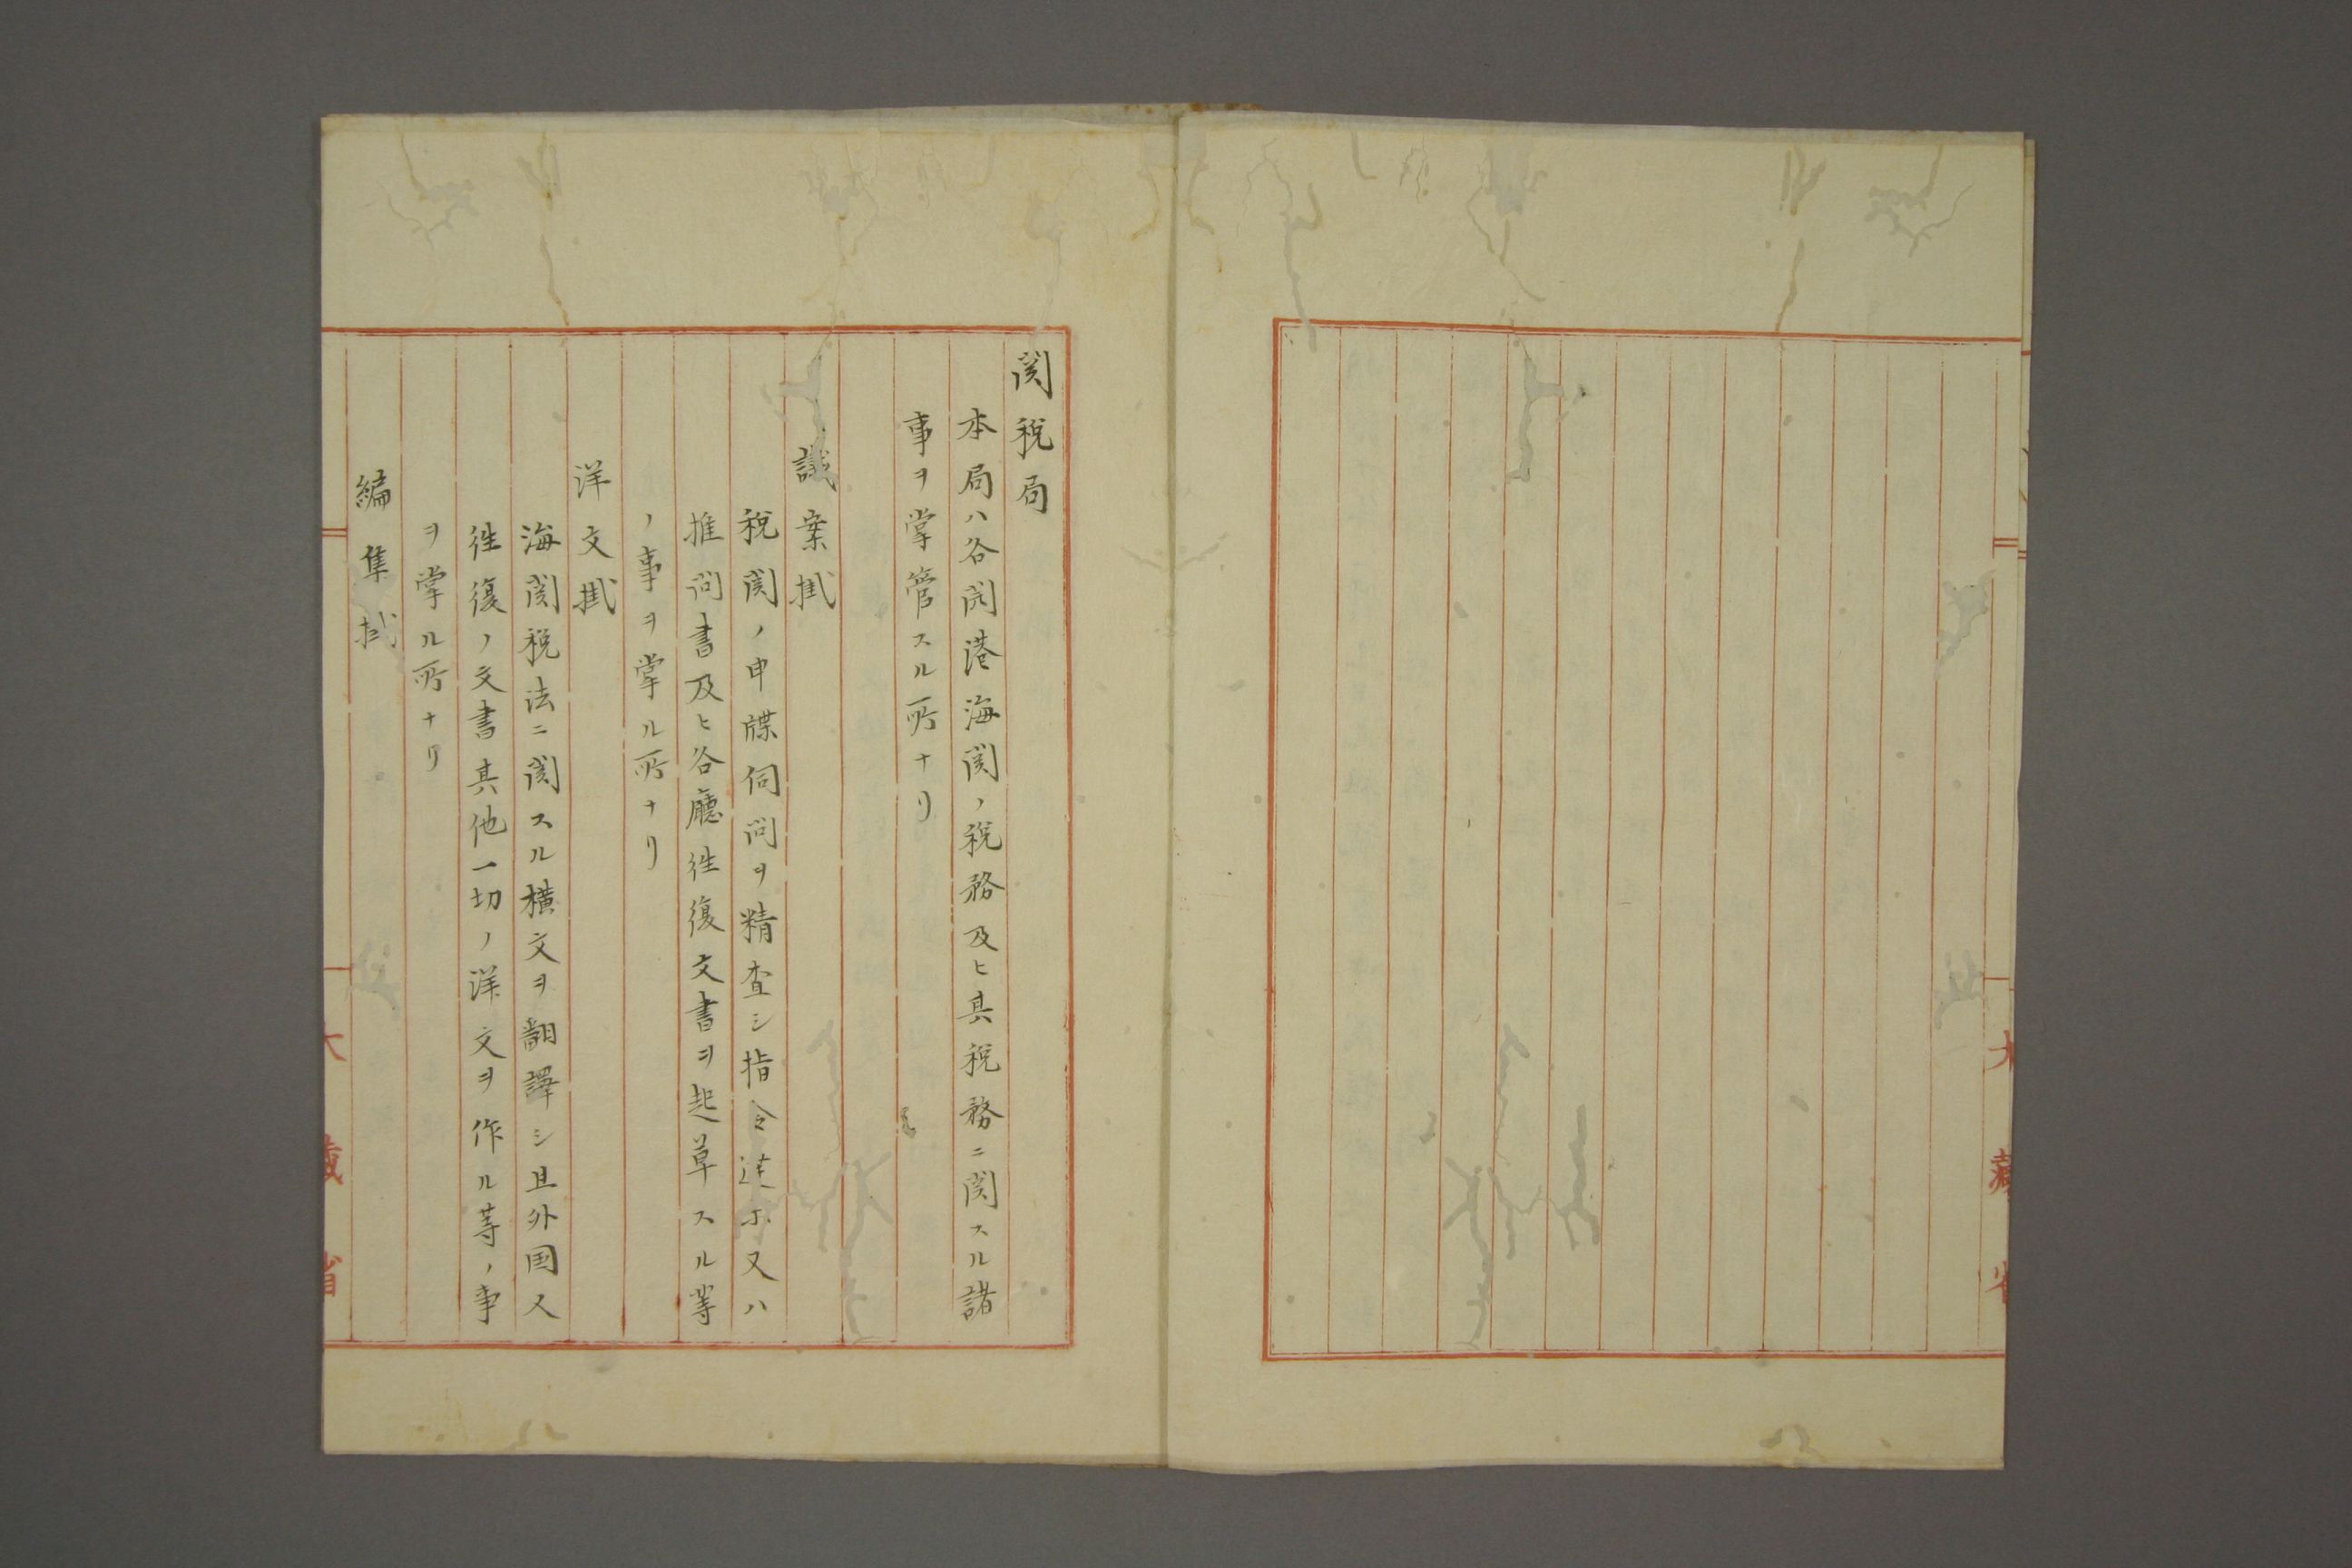 大藏省
関税局
本局ハ各開港海関ノ税務及ヒ其税務ニ関スル諸
事ヲ掌管スル所ナリ
議案掛
税関ノ申牒伺問ヲ精査シ指令達示又ハ
推問書及ヒ各廳往復文書ヲ起草スル等
ノ事ヲ掌ル所ナリ
洋文掛
海関税法ニ関スル横文ヲ翻譯シ且外国人
往復ノ文書其他一切ノ洋文ヲ作ル等ノ事
ヲ掌ル所ナリ
編集掛
大藏省